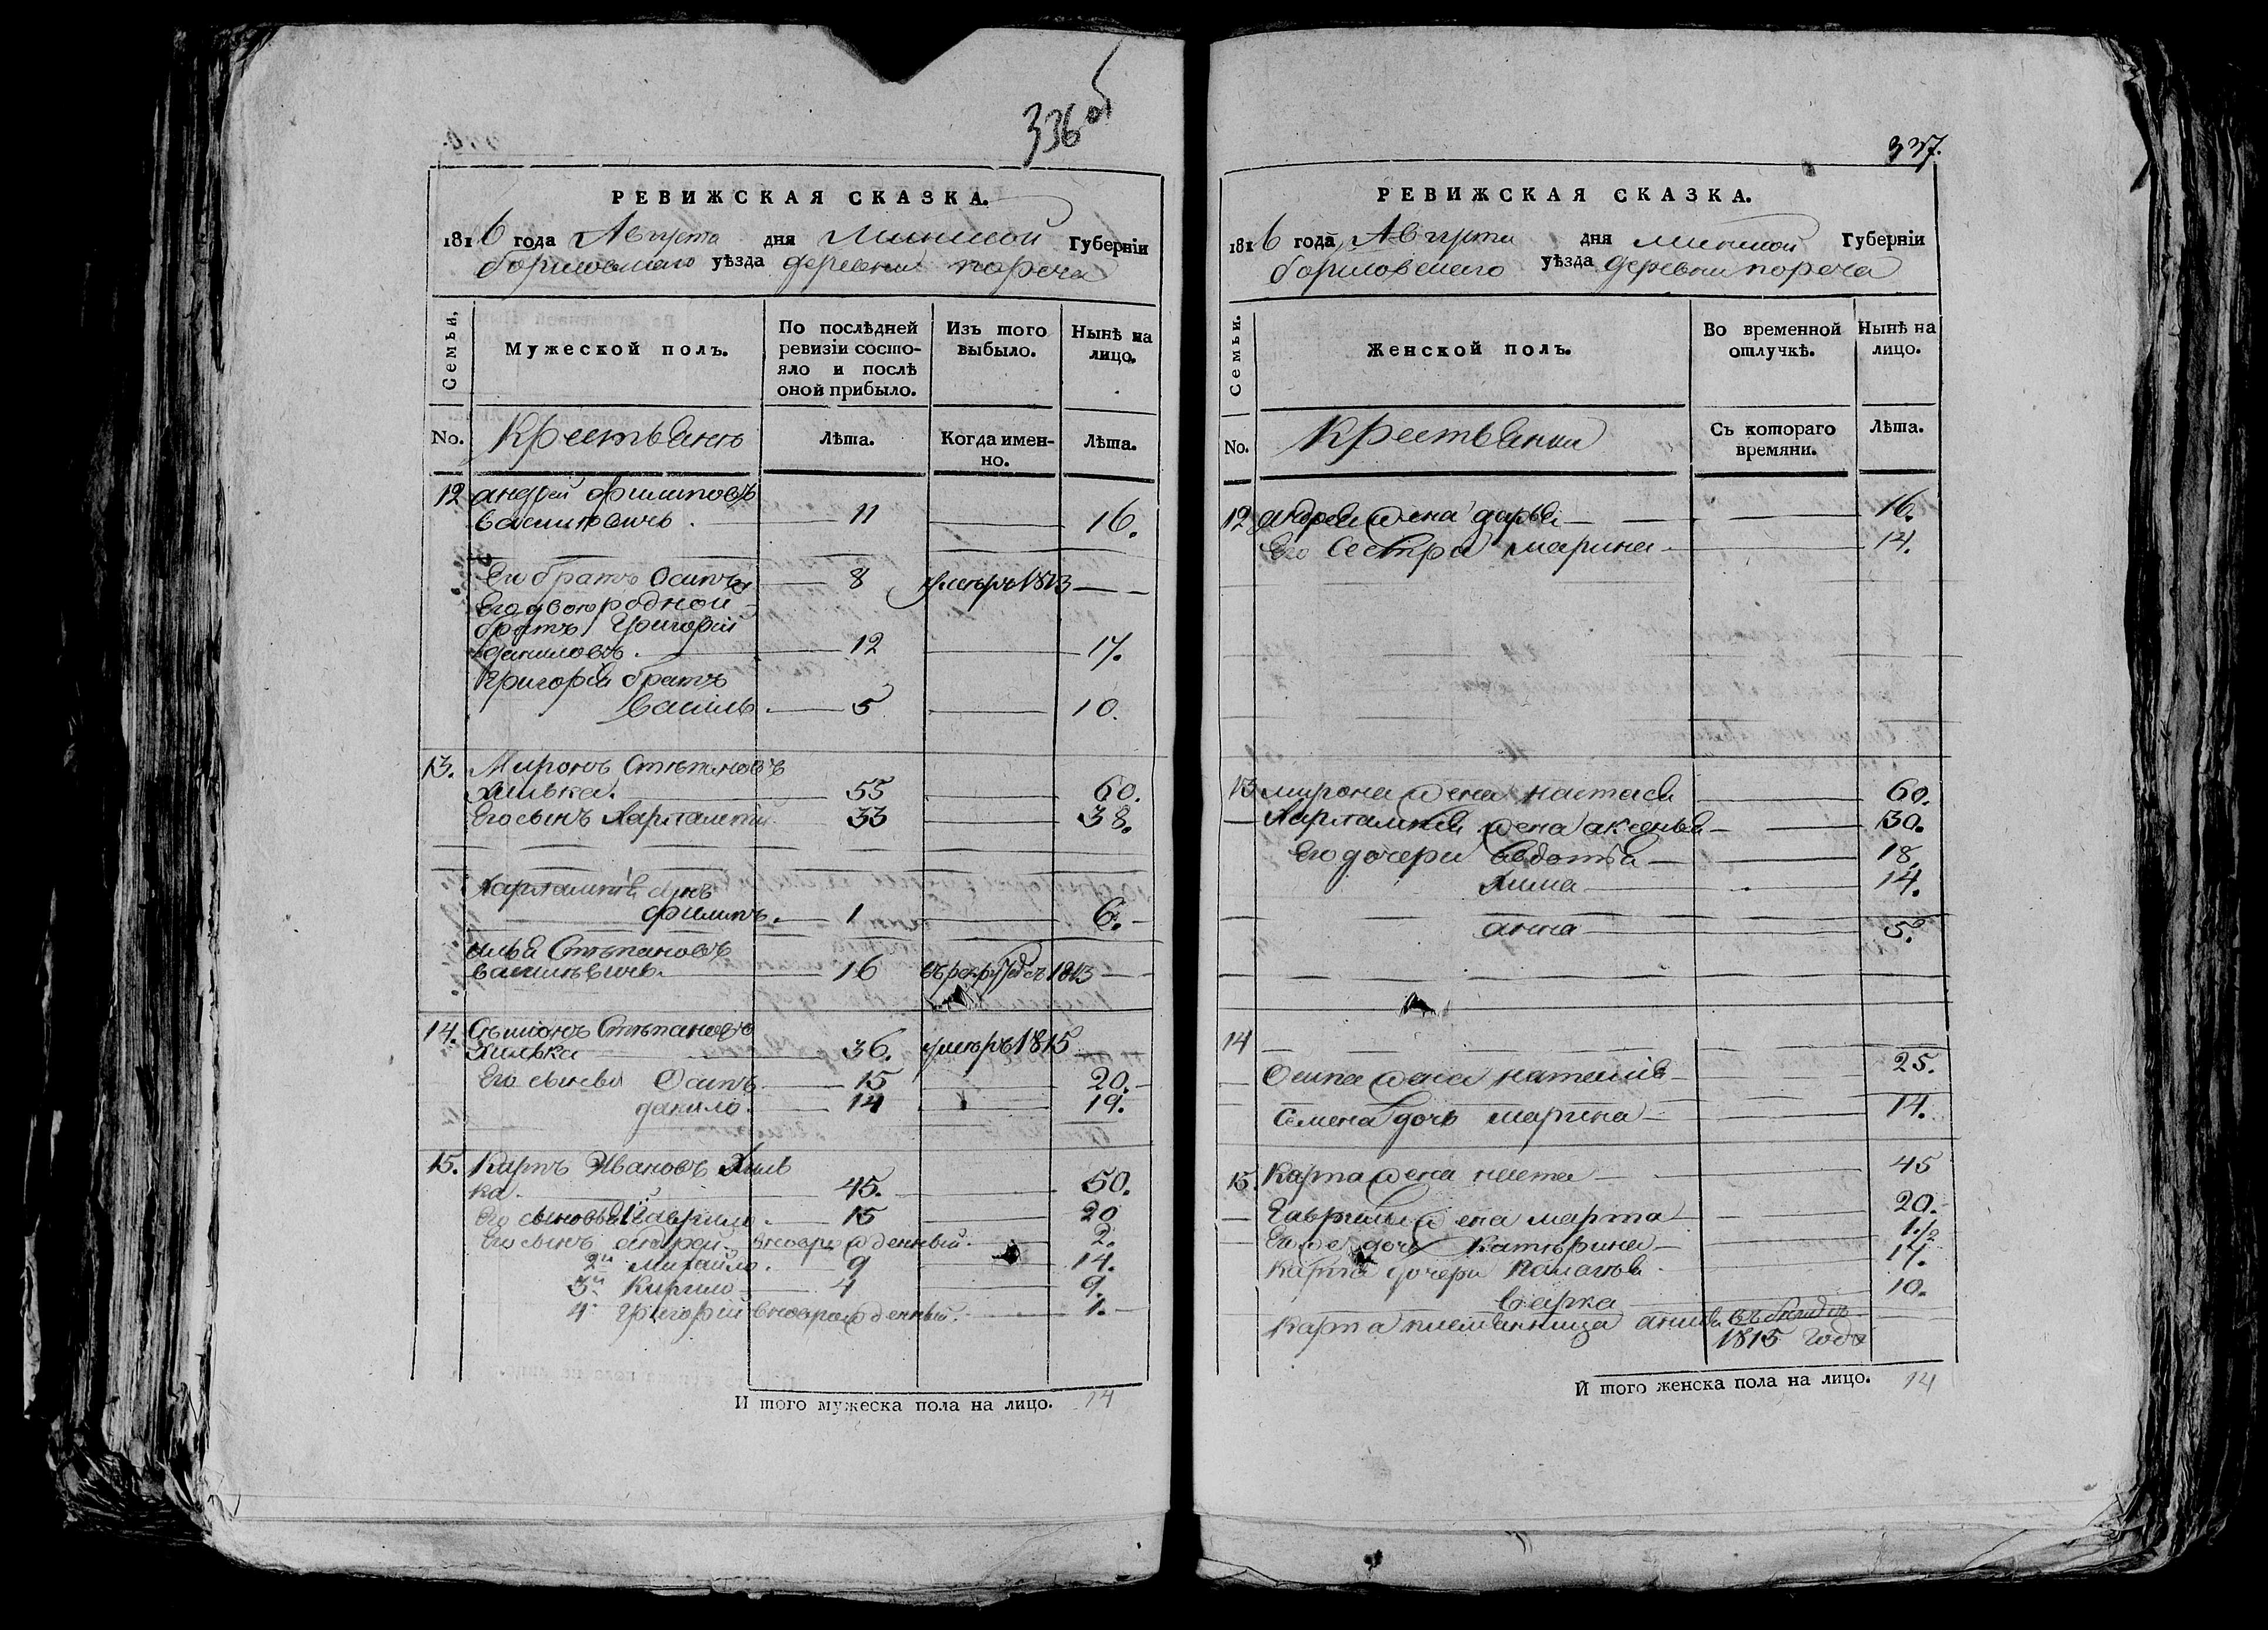 336 об
РЕВИЖСКАЯ СКАЗКА.
1816 года Августа дня Минской Губерніи
борисовского уѣзда деревни пореча
Семьи.
Мужеской полъ.
По послѣдней ревизіи состо-
яло и послѣ
оной прибыло.
Изъ того
выбыло.
Нынѣ на
лицо.
No.
Крестьяне
Лѣта.
Когда имен-
но.
Лѣта.
12 андрей филиповъ
василевичъ. 11 16.
Его братъ Осипъ 8 умеръ 1813
Его двоюродной
братъ Григорій
даниловъ. 12 17.
Григорѣя братъ
василь. 5 10.
13. Миронъ Степановъ
Хилька. 55 60.
Его сынъ Харлампій 33 38.
Харлампія сынъ
филипъ. 1 6.
илья Степановъ
василевичъ. 16 въ рекруты 1813
14. Сѣмионъ Степановъ
Хилька 36. умеръ 1815
Его сыновья Осипъ 15 20.
данило. 14 19.
15. Карпъ Ивановъ Хиль
ка. 45. 50.
Его сыновья Гаврило. 15 20
Его сынъ андрей вноворожденный. 2.
2й Михайло. 9 14.
3й Кирило 4 9.
4й Григорій вноворожденный. 1.
И того мужеска пола на лицо. 14
337.
РЕВИЖСКАЯ СКАЗКА.
1816 года Августа дня минской Губерніи
борисовского уѣзда деревни пореча
Семьи.
Женской полъ.
Во временной
отлучкѣ.
Нынѣ на
лицо.
No.
Крестьянки
Съ котораго
времяни.
Лѣта.
12 андрея жена дарья 16.
Его Сестра марина 14.
13 мирона жена настася 60.
Харлампія жена аксенья 30.
Его дочери авдотья 18.
Хима 14.
анна 5.
14
Осипа жена наталія 25.
Семена дочь марина 14.
15. Карпа жена наста 45
Гаврилы жена марта 20.
Его же дочь Катерина 1 1/2
Карпа дочери Паланья 17.
варка 10.
Карпа племянница
1815 года
И того женска пола на лицо. 14